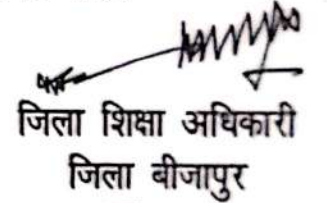 जिला शिक्षा अधिकारी
जिला बीजापुर